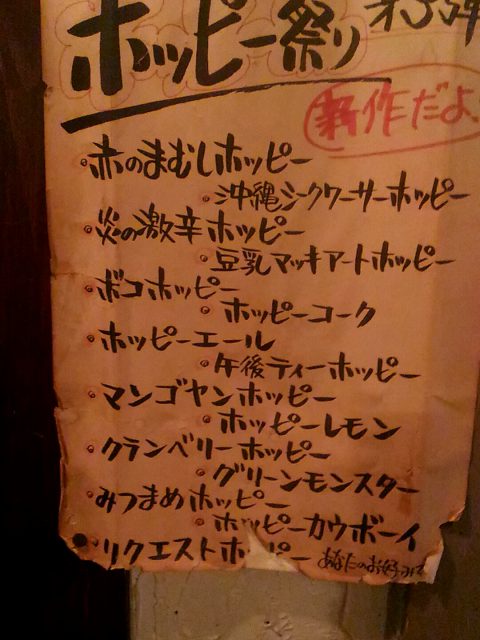 ホッピー祭り
新作だよ
赤のまむしホッピー
沖縄シークワーサーホッピー
炎の激辛ホッピー
豆乳マッキアートホッピー
ボコホッピー
ホッピーコーク
ホッピーエール
午後ティーホッピー
マンゴヤンホッピー
ホッピーレモン
クランベリーホッピー
グリーンモンスター
みつまめホッピー
ホッピーカウボーイ
リクエストホッピー
あなたのお好みで